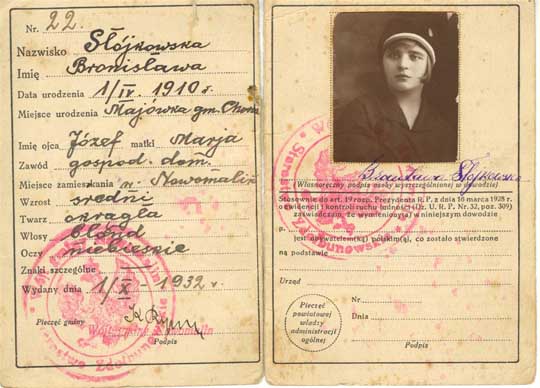 Nr. 22.
Nazwisko Słójkowska
Imię Bronisława
Data urodzenia 1/IV. 1910 r.
Miejsce urodzenia Majówka gm. Chorów
Imię ojca Józef matki Marja
Zawód gospod. dom.
Miejsce zamieszkania w. Nowomalin
Wzrost średni
Twarz okrągła
Włosy blond
Oczy niebieskie
Znaki szczególne
Wydany dnia 1/X - 1932 r.
Pieczęć gminy
Podpis
Bronisława Słójkowska
(Własnoręczny podpis osoby wyszczególnionej w dowodzie)
Stosownie do art. 19 rozp. Prezydenta R. P. z dnia 16 marca 1928 r.
o ewidencji i kontroli ruchu ludności (Dz. U. R. P. Nr. 32, poz. 309)
zaświadczam, że wymieniony(a) w niniejszym dowodzie
p.
jest obywatelem(ką) polskim(ą), co zostało stwierdzone
na podstawie
Urząd
Nr.
Dnia
Pieczęć
powiatowej
władzy
administracji
ogólnej
Podpis